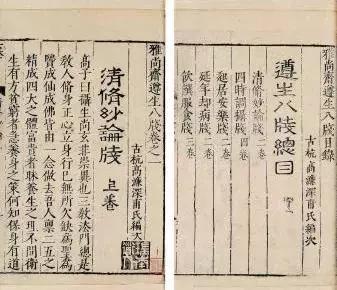 雅尚齋遵生八牋目錄
遵生八牋總目
古杭高濂深甫氏編次
清修妙論牋 二卷
四時調攝牋 四卷
起居安樂牋 二卷
延年却病牋 二卷
飲饌服食牋 三卷
雅尚齋遵生八牋卷之一
古杭高濂深甫氏編次
清脩玅論牋 上卷
高子曰攝生尚玄非崇異也三教法門總是
教人修身正心立身行己無所欠缺爲聖爲
賢成仙成佛皆由一念做去吾人稟二五之
精成四大之體富貴者昧養生之理不問衛
生有方貧窮者急養身之策何知保身有道